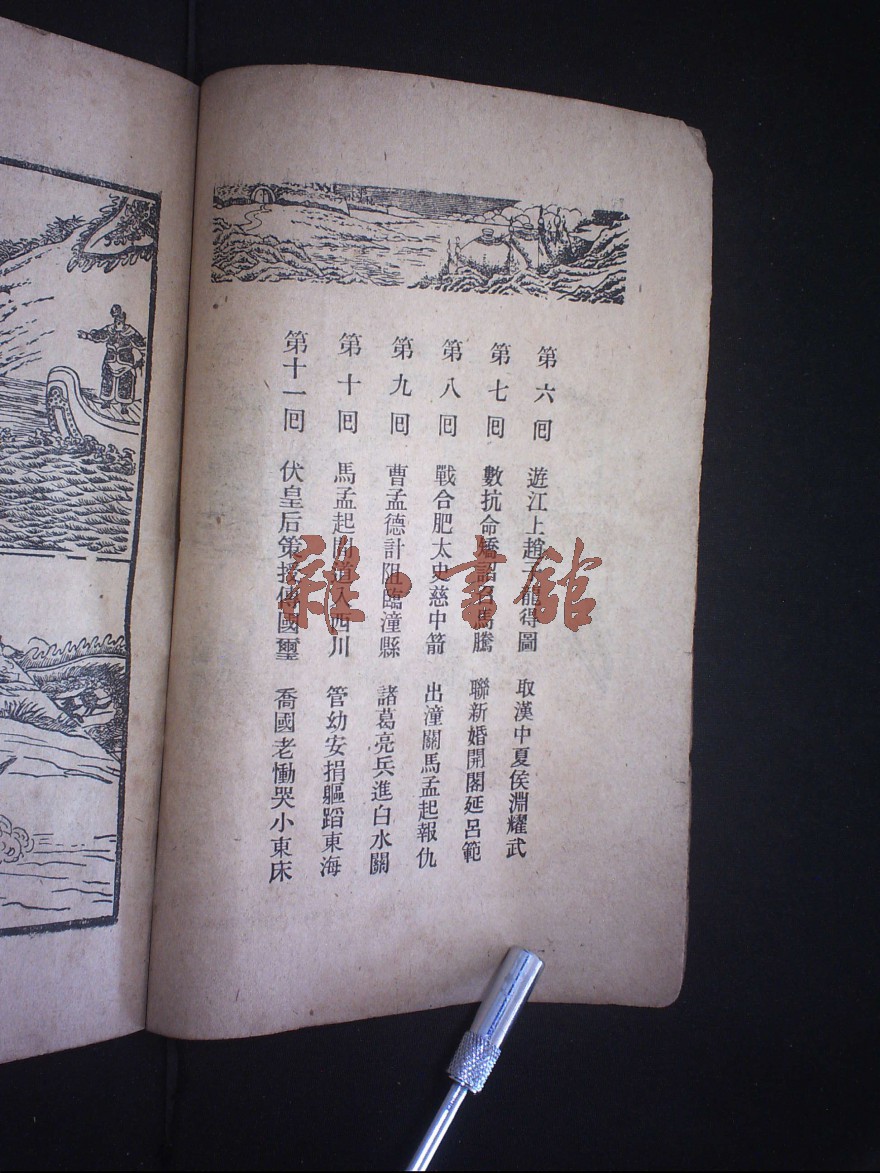 第六回 遊江上趙子龍得圖 取漢中夏侯淵耀武
第七回 數抗命矯詔召馬騰 聯新婚開閣延呂範
第八回 戰合肥太史慈中箭 出潼關馬孟起報仇
第九回 曹孟德計阻臨潼縣 諸葛亮兵進白水關
第十回 馬孟起間道入西川 管幼安捐軀蹈東海
第十一回 伏皇后策授傳國璽 喬國老慟哭小東床
雜·書館